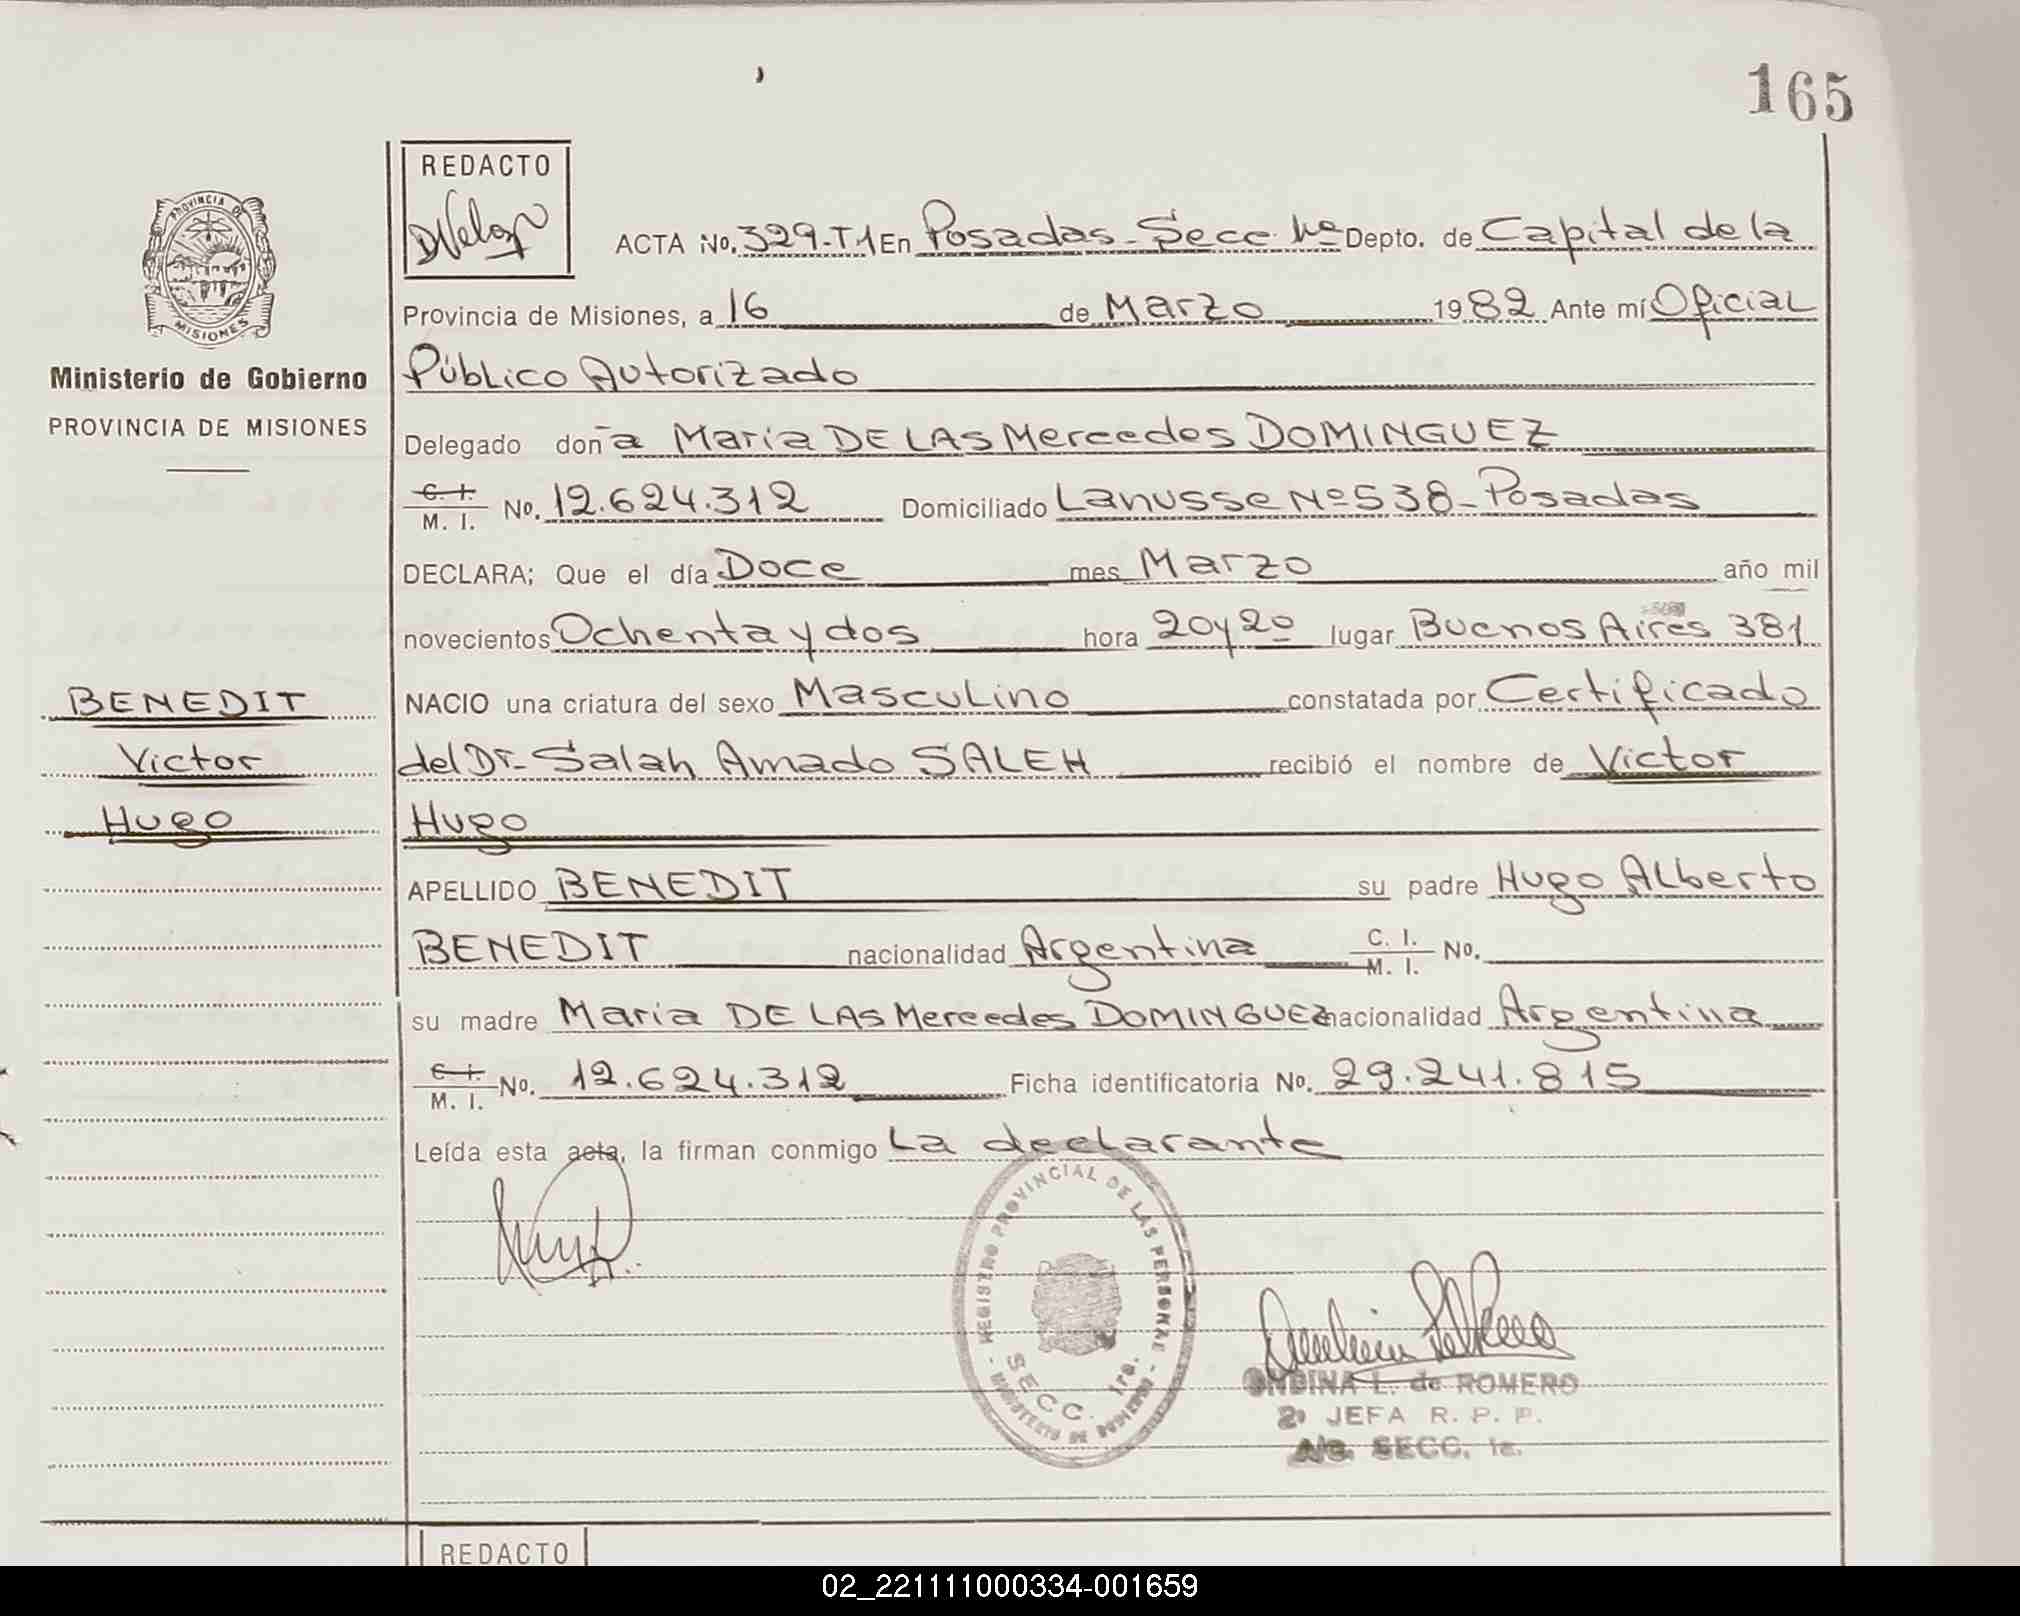 165
REDACTO
PROVINCIA DE
MISIONES
Ministerio de Gobierno
PROVINCIA DE MISIONES
ACTA No. 329-T1 En Posadas - Secc 1ª Depto. de Capital de la
Provincia de Misiones, a 16 de Marzo 1982 Ante mí Oficial
Público Autorizado
Delegado don ̃a Maria DE LAS Mercedes DOMINGUEZ
C. I. M. I. No. 12.624.312 Domiciliado Lanusse Nº 538 - Posadas
DECLARA; Que el día Doce mes Marzo año mil
novecientos Ochenta y dos hora 20 y 20 lugar Buenos Aires 381
NACIO una criatura del sexo Masculino constatada por Certificado
del Dr. Salah Amado SALEH recibió el nombre de Victor
Hugo
APELLIDO BENEDIT su padre Hugo Alberto
BENEDIT nacionalidad Argentina C. I. M. I. No.
su madre Maria DE LAS Mercedes DOMINGUEZ nacionalidad Argentina
C. I. M. I. No. 12.624.312 Ficha identificatoria No. 29.241.815
Leída esta acta, la firman conmigo La declarante
BENEDIT
Victor
Hugo
REGISTRO PROVINCIAL DE LAS PERSONAS - MINISTERIO DE GOBIERNO -
SECC. 1ra.
ONDINA L. de ROMERO
2º JEFA R. P. P.
A/c. SECC. 1a.
REDACTO
02_221111000334-001659